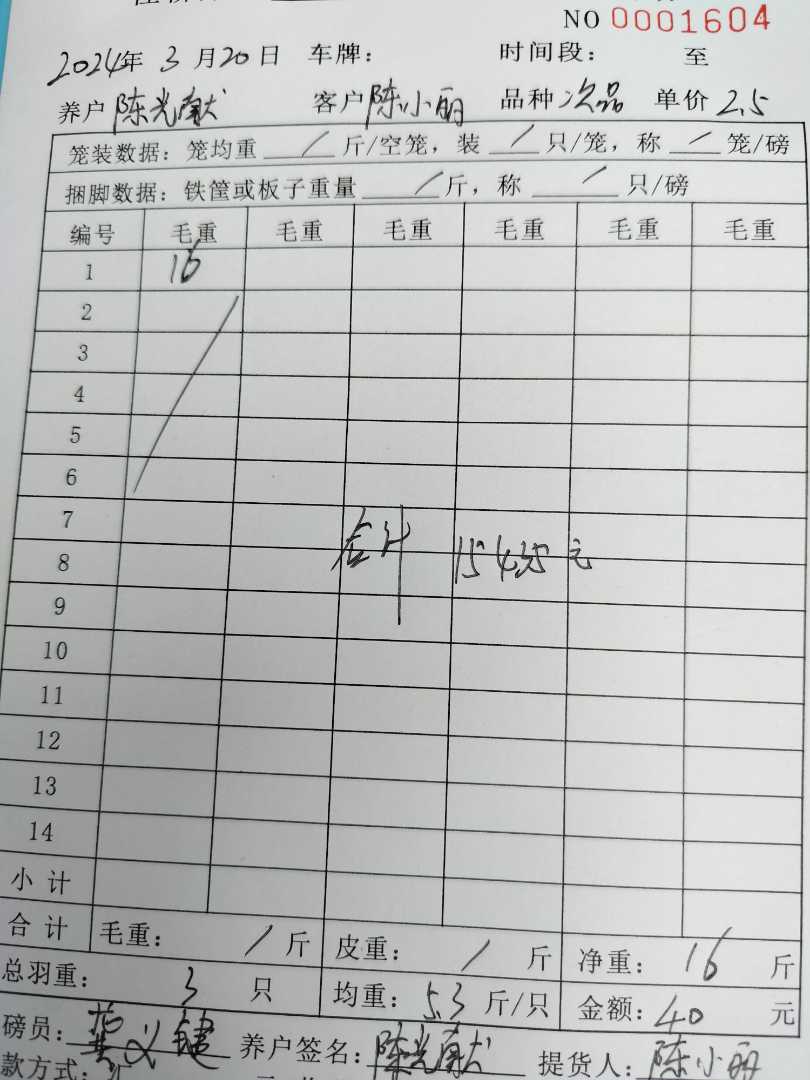 NO 0001604
2024年 3 月20日 车牌： 时间段： 至
养户 陈光献 客户 陈小丽 品种 次品 单价 2.5
笼装数据：笼均重 / 斤/空笼，装 / 只/笼，称 / 笼/磅
捆脚数据：铁筐或板子重量 / 斤，称 / 只/磅
编号 毛重 毛重 毛重 毛重 毛重 毛重
1 16
2
3
4
5
6
7
8 合计 15435 元
9
10
11
12
13
14
小计
合计 毛重： / 斤 皮重： / 斤 净重： 16 斤
总羽重： 3 只 均重： 5.3 斤/只 金额： 40 元
磅员： 义键 养户签名： 陈光献 提货人： 陈小丽
款方式：